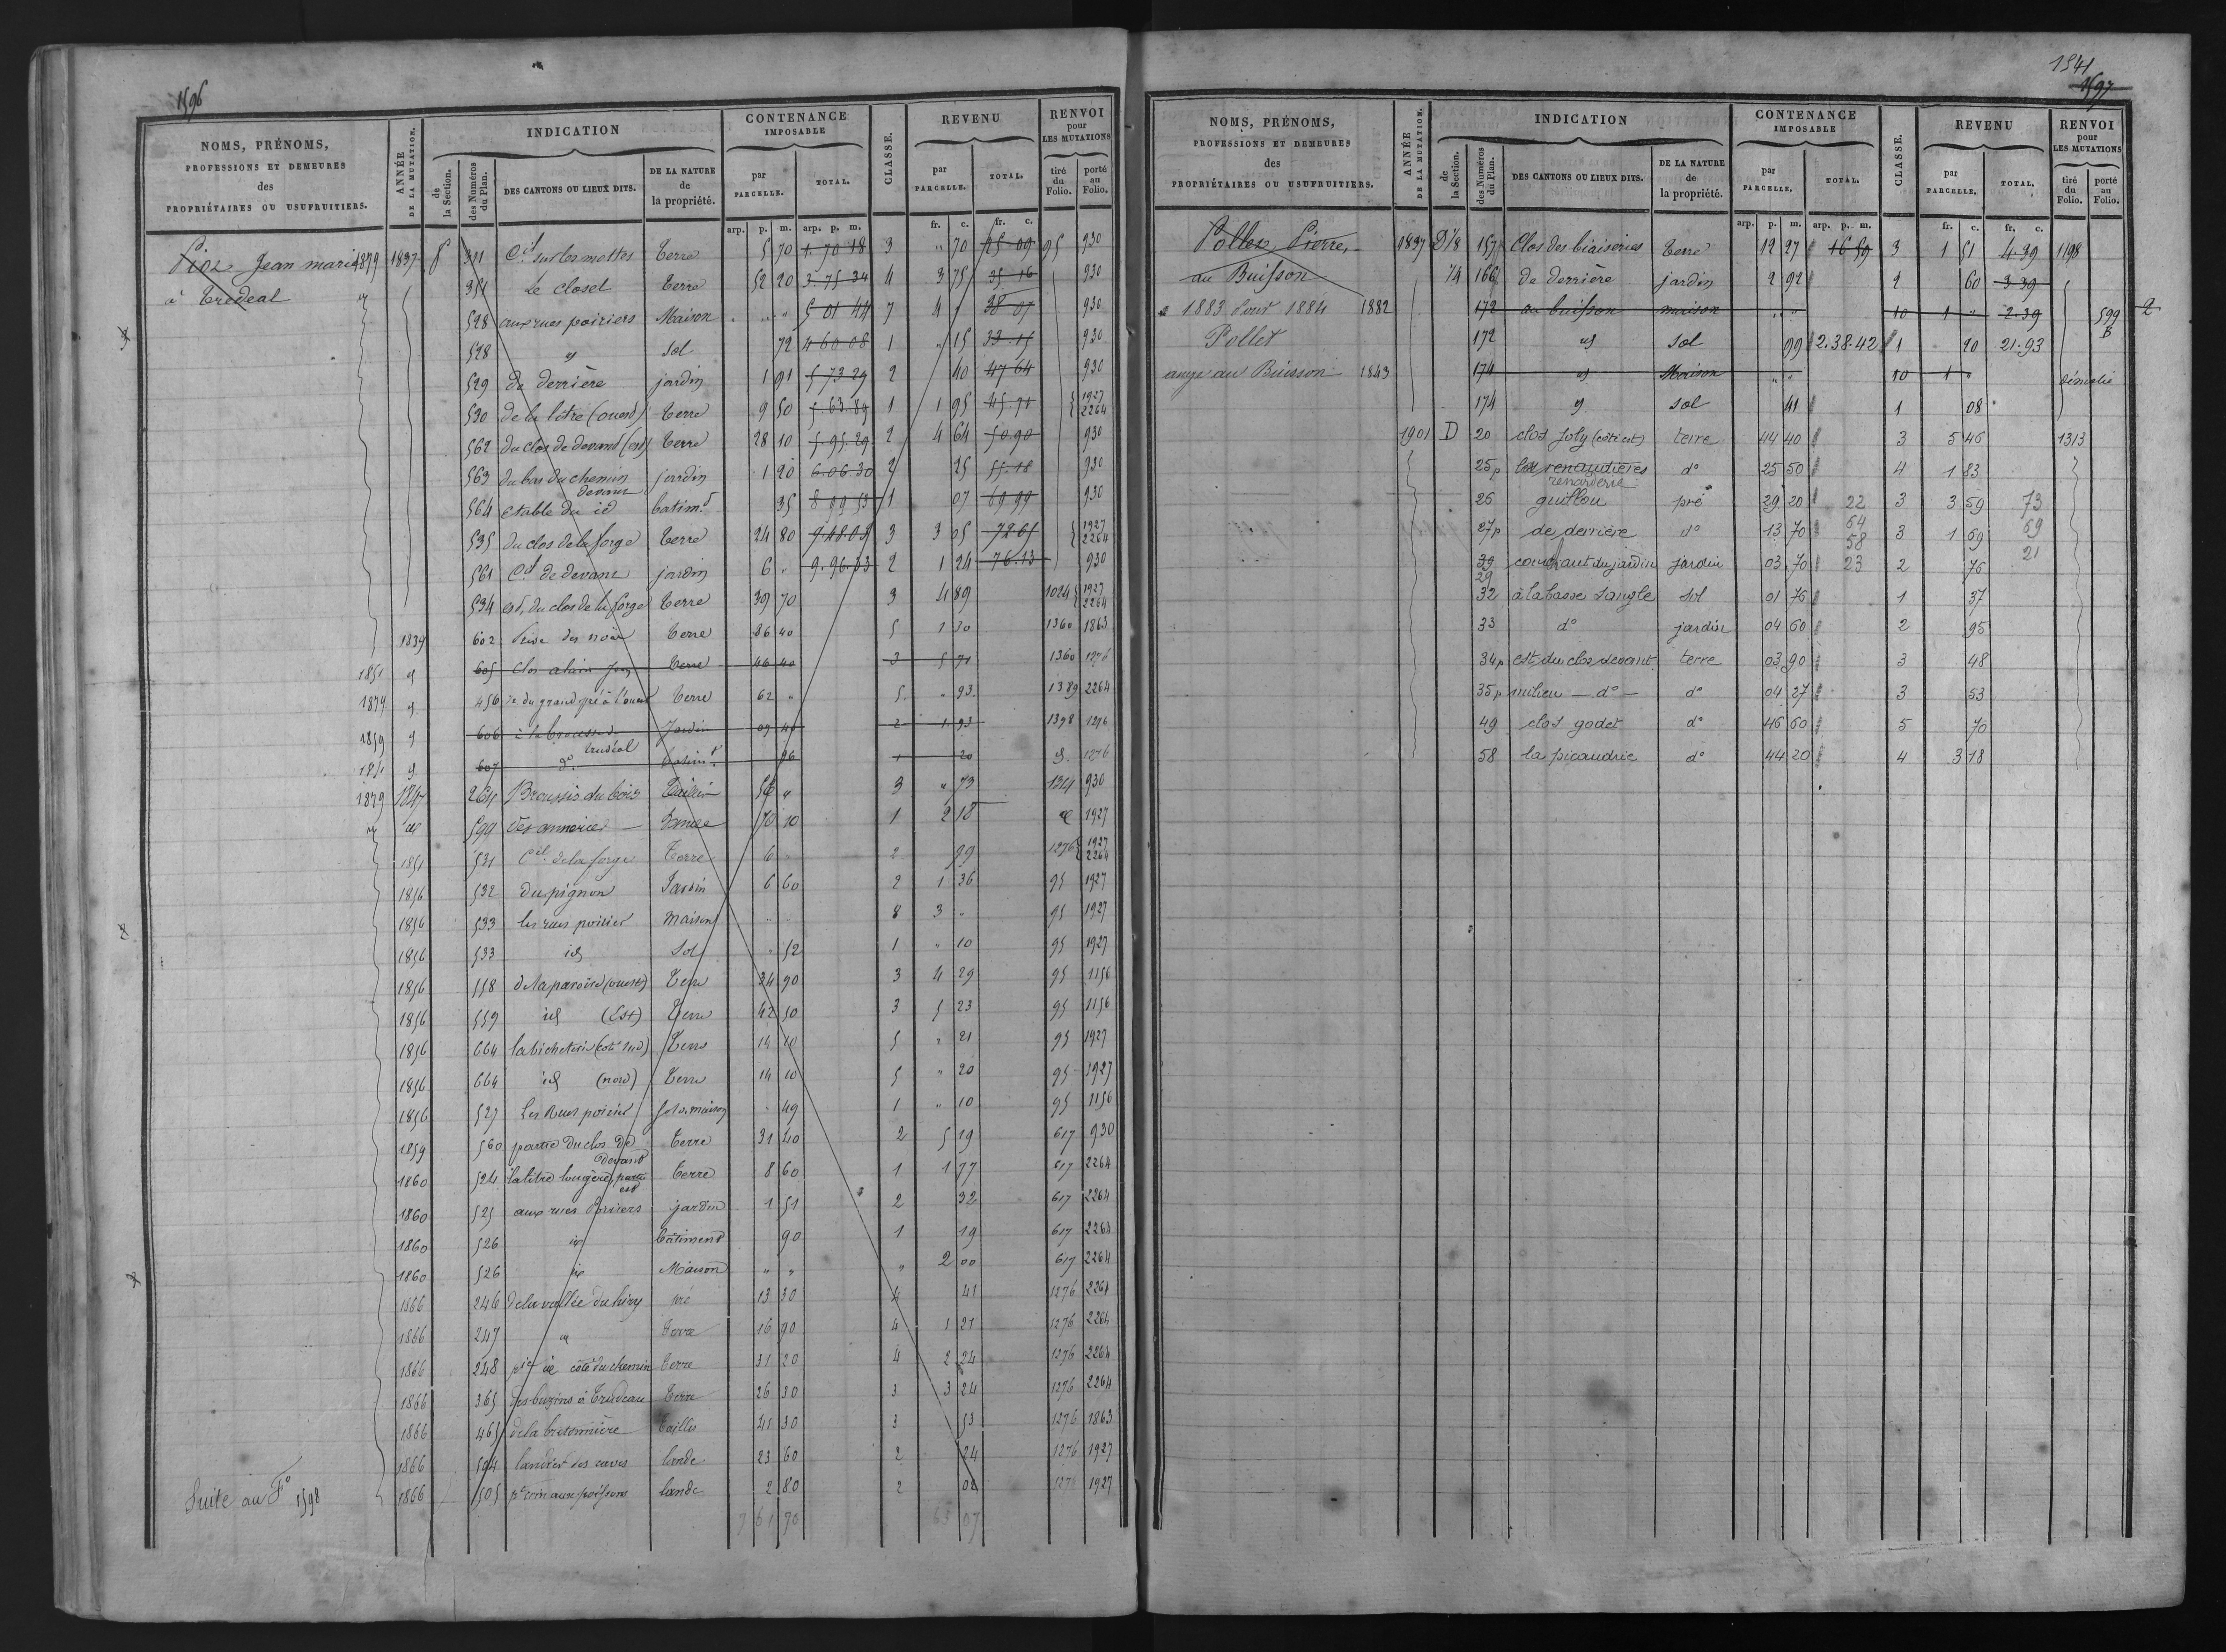 1596
NOMS, PRÉNOMS, PROFESSIONS ET DEMEURES des PROPRIÉTAIRES OU USUFRUITIERS.
ANNÉE DE LA MUTATION.
INDICATION
de la Section.
des Numéros du Plan.
DES CANTONS OU LIEUX DITS.
DE LA NATURE de la propriété.
CONTENANCE IMPOSABLE
par PARCELLE.
TOTAL.
CLASSE.
REVENU
par PARCELLE.
TOTAL.
RENVOI pour LES MUTATIONS
tiré du Folio.
porté au Folio.
arp. p. m. arp. p. m. fr. c. fr. c.
Jean marie 1879 1837 311 Cel sur les mottes terre 5 70 1.70 18 3 " 70 25 09 95 930
à Tredeal 351 Le closel terre 52 20 3.75 34 4 3 75 35 16 930
528 aux rues poiriers Maison " " 5 01 44 7 4 38 07 930
528 id Sol 72 4 60 08 1 " 15 930
529 de derrière jardin 1 91 5 73 29 2 40 47 64 930
530 de la litre (ouest) terre 9 50 5.63.89 1 1 95 45.91 1927 2264
562 du clos de devant (est) terre 28 10 5.95.29 2 4 64 50.90 930
563 du bas du chemin jardin 1 20 6.06.30 2 25 55.18 930
564 etable du id devant batimt 35 8 99 53 1 07 69 99 930
535 du clos de la forge terre 24 80 3 3 05 72 61 1927 2264
561 Cel de devant jardin 6 " 9.96.33 2 1 24 76.13 930
534 est, du clos de la forge terre 39 70 3 4 89 1024 1927 2264
1839 602 des noix terre 86 40 5 1 30 1360 1863
1851 605 Clos alain terre 46 40 3 5 71 1360 1276
1879 456 id du grand pré à l'ouest terre 62 " 5 " 93 1389 2264
1859 606 à la brousse Jardin 09 40 2 1 93 1398 1276
1851 607 do trudeal batimt 96 1 20 id. 1276
1879 1847 264 Broussis du bois Taillis 56 " 3 " 73 1314 930
599 des anneries 70 10 1 2 18 1927
1851 531 Cel de la forge Terre 6 2 99 1276 1927 2264
1856 532 du pignon Jardin 6 60 2 1 36 95 1927
1856 533 les rues poirier Maison " " 8 3 " 95 1927
1856 533 id Sol " 52 1 " 10 95 1927
1856 558 de la paroire (ouest) Terre 34 90 3 4 29 95 1156
1856 559 id (Est) Terre 42 50 3 5 23 95 1156
1856 664 la bicheterie (coté sud) Terre 14 10 5 " 21 95 1927
1856 664 id (nord) Terre 14 10 5 " 20 95 1927
1856 527 Les Rues poirier sol de maison " 49 1 " 10 95 1156
1859 560 partie du clos de devant terre 31 40 2 5 19 617 930
1860 524 la litre longère, partie est terre 8 60 1 1 77 617 2264
1860 525 aux rues Poiriers jardin 1 51 2 32 617 2264
1860 526 id bâtiment 90 1 19 617 2264
1860 526 id Maison " " " 2 00 617 2264
1866 246 de la vallée du hiry pré 13 30 4 41 1276 2264
1866 247 id terre 16 90 4 1 21 1276 2264
1866 248 pie id côté du chemin terre 31 20 4 2 24 1276 2264
1866 365 les buzins à Trudeau terre 26 30 3 3 24 1276 2264
1866 465 de la bretonnière taillis 41 30 3 53 1276 1863
1866 504 landier des caves lande 23 60 2 24 1276 1927
Suite au Fo 1598 1866 505 lande 2 80 2 02 1276 1927
7 61 70 63 07
1541
1597
NOMS, PRÉNOMS, PROFESSIONS ET DEMEURES des PROPRIÉTAIRES OU USUFRUITIERS.
ANNÉE DE LA MUTATION.
INDICATION
de la Section.
des Numéros du Plan.
DES CANTONS OU LIEUX DITS.
DE LA NATURE de la propriété.
CONTENANCE IMPOSABLE
par PARCELLE.
TOTAL.
CLASSE.
REVENU
par PARCELLE.
TOTAL.
RENVOI pour LES MUTATIONS
tiré du Folio.
porté au Folio.
arp. p. m. arp. p. m. fr. c. fr. c.
Pollet Pierre, 1837 D 1/8 157 Clos des biaiseries terre 12 27 16 59 3 1 51 4.39 1198
au Buisson 1/4 166 de derrière jardin 2 92 2 60 3 39
1883 1884 1882 172 au buisson maison " " 10 1 " 2.39 599 B 2
Pollet 172 id Sol 99 2.38.42 1 20 21.93
ange au Buisson 1843 174 id Maison " " 10 1 " démolie
174 id sol 41 1 08
1901 D 20 clos Joly (côté est) terre 44 40 3 5 46 1313
25p les renaudières renarderie do 25 50 4 1 83
26 guillou pré 29 20 22 3 3 59 73
27p de derrière do 13 70 64 58 3 1 69 69
39 29 couchant du jardin jardin 03 70 23 2 76 21
32 à la basse sangle sol 01 76 1 37
33 do jardin 04 60 2 95
34p est du clos devant terre 03 90 3 48
35p milieu — do — do 04 27 3 53
49 clos godet do 46 60 5 70
58 la picaudrie do 44 20 4 3 18